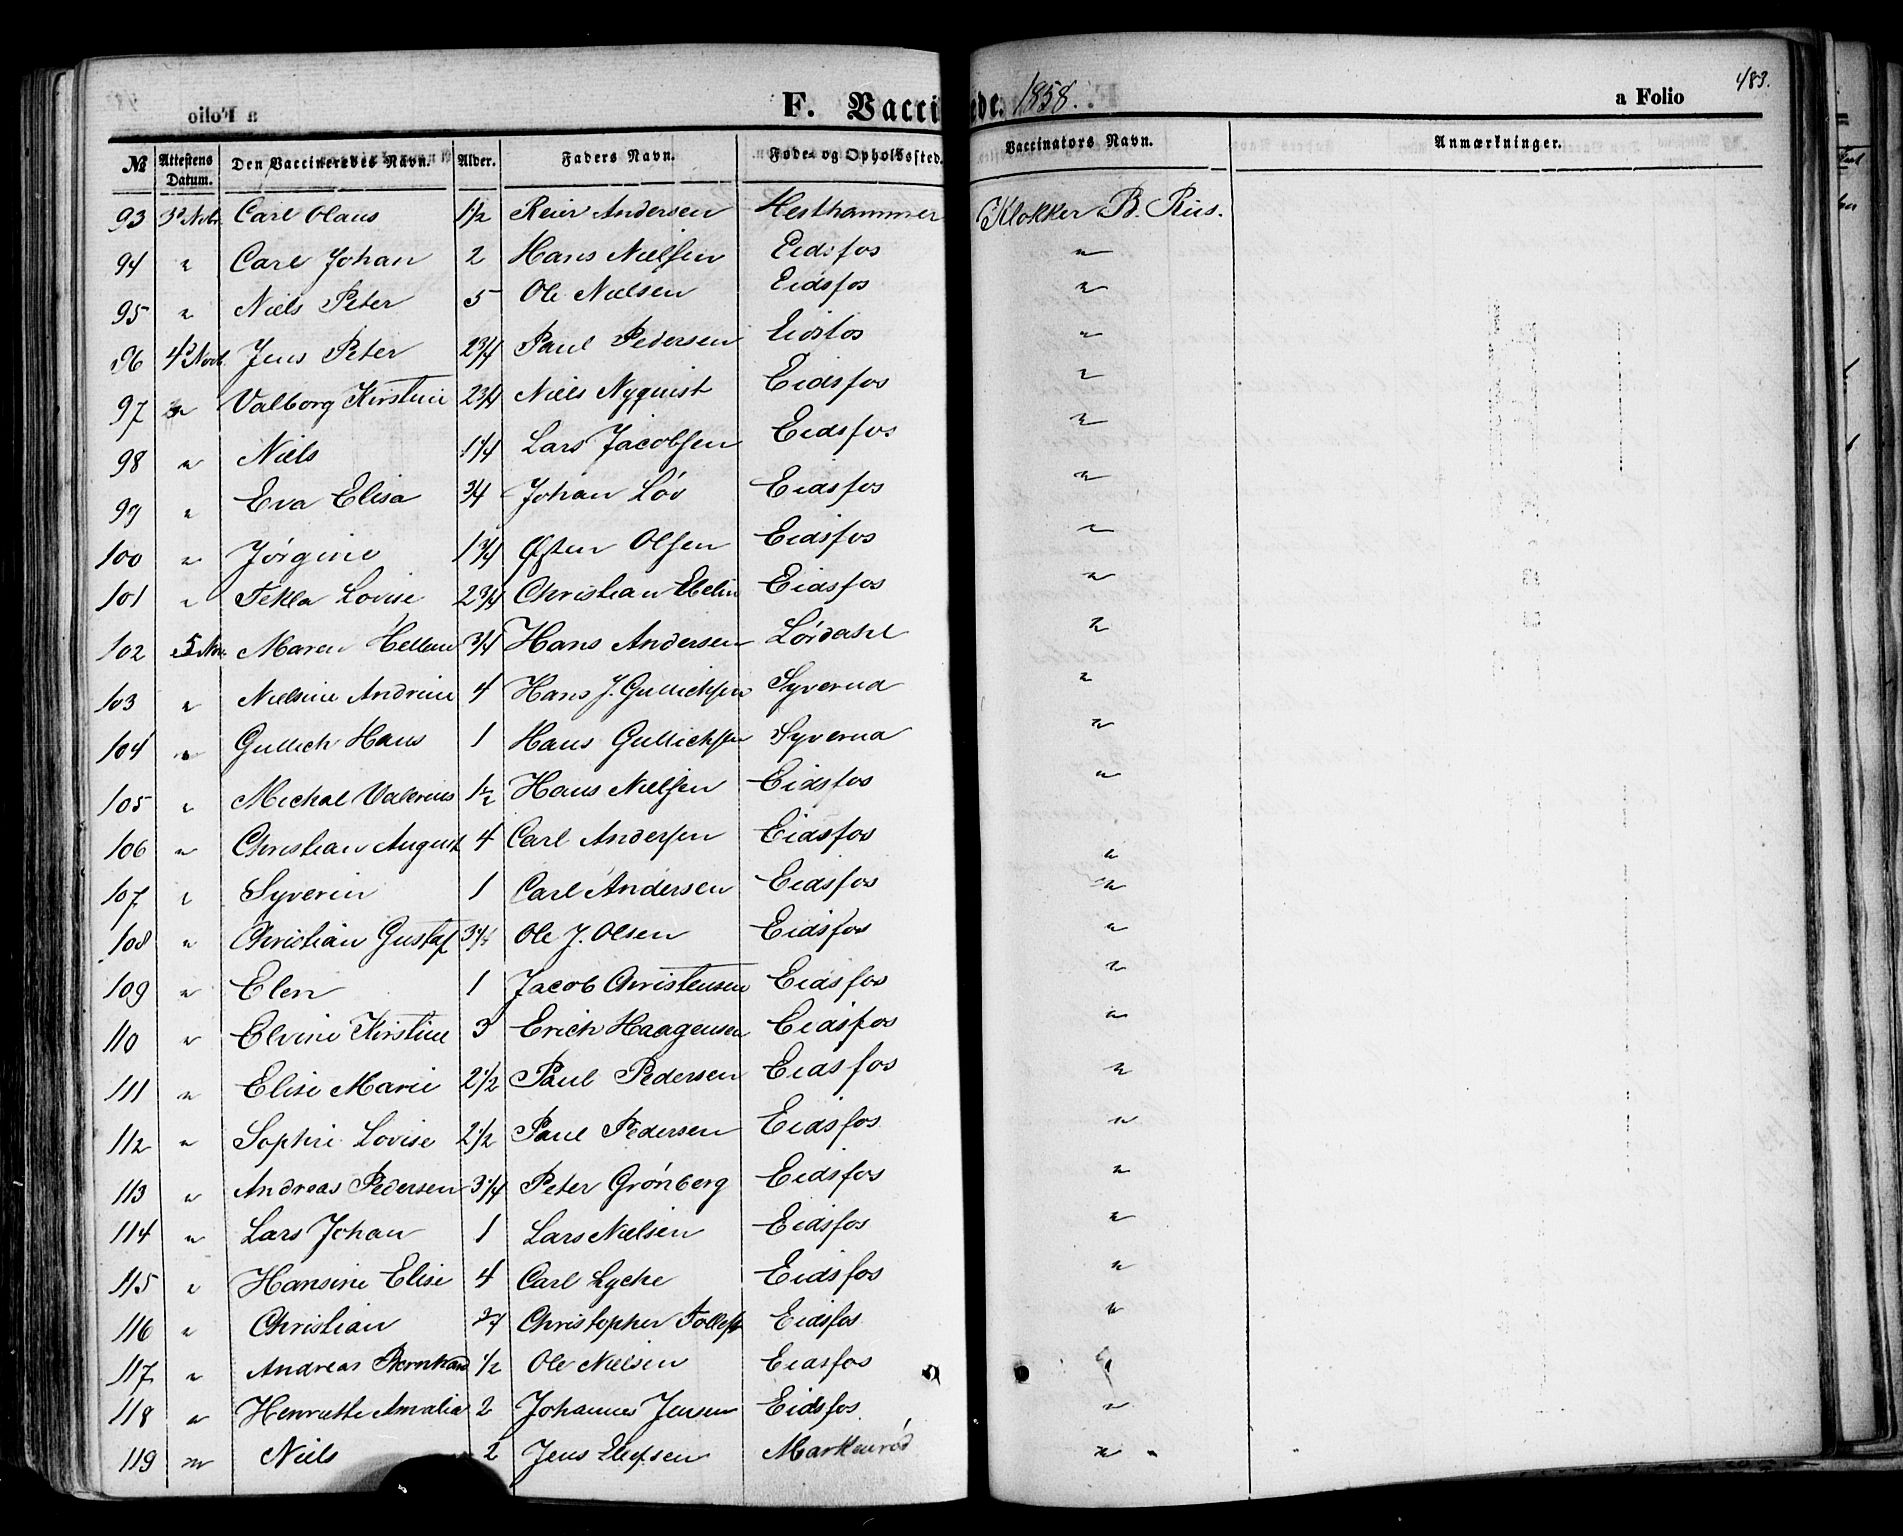 F. Vacci ede. 1858. a Folio 483.
№ Attestens Datum. Den Vaccineredes Navn. Alder. Faders Navn. Føde- og Opholdssted. Vaccinators Navn. Anmærkninger.
93 3d Novb. Carl Olaus 1½ Reier Andersen Hesthammer Klokker B. Riis.
94 " Carl Johan 2 Hans Nielsen Eidsfos "
95 " Niels Peter 5 Ole Nielsen Eidsfos "
96 4d Novb. Jens Peter 2¾ Paul Pedersen Eidsfos "
97 " Valborg Kirstine 2¾ Niels Nyquist Eidsfos "
98 " Niels 1¼ Lars Jacobsen Eidsfos "
99 " Eva Elisa ¾ Johan Løv Eidsfos "
100 " Jørgine 1¾ Østen Olsen Eidsfos "
101 " Tekla Lovise 2¾ Christian Eidsfos "
102 5 Nov. Maren Hellene ¾ Hans Andersen Lørdahl "
103 " Nielsine Andrine 4 Hans J. Gullichsen Syverud "
104 " Gullich Hans 1 Hans Gullichsen Syverud "
105 " Michal Valerius ½ Hans Nielsen Eidsfos "
106 " Christian August 4 Carl Andersen Eidsfos "
107 " Syverin 1 Carl Andersen Eidsfos "
108 " Christian Gustaf 3¼ Ole J. Olsen Eidsfos "
109 " Elen 1 Jacob Christensen Eidsfos "
110 " Elvine Kirstine 3 Erich Haagensen Eidsfos "
111 " Elise Marie 2½ Paul Pedersen Eidsfos "
112 " Sophie Lovise 2½ Paul Pedersen Eidsfos "
113 " Andreas Pedersen 3¼ Peter Grønberg Eidsfos "
114 " Lars Johan 1 Lars Nielsen Eidsfos "
115 " Hansine Elise 4 Carl Lycke Eidsfos "
116 " Christian ¾ Christopher Eidsfos "
117 " Andreas Bernhard ½ Ole Nielsen Eidsfos "
118 " Henriette Amalia 2 Johannes Jensen Eidsfos "
119 " Niels 2 Jens Elefsen Markerød "